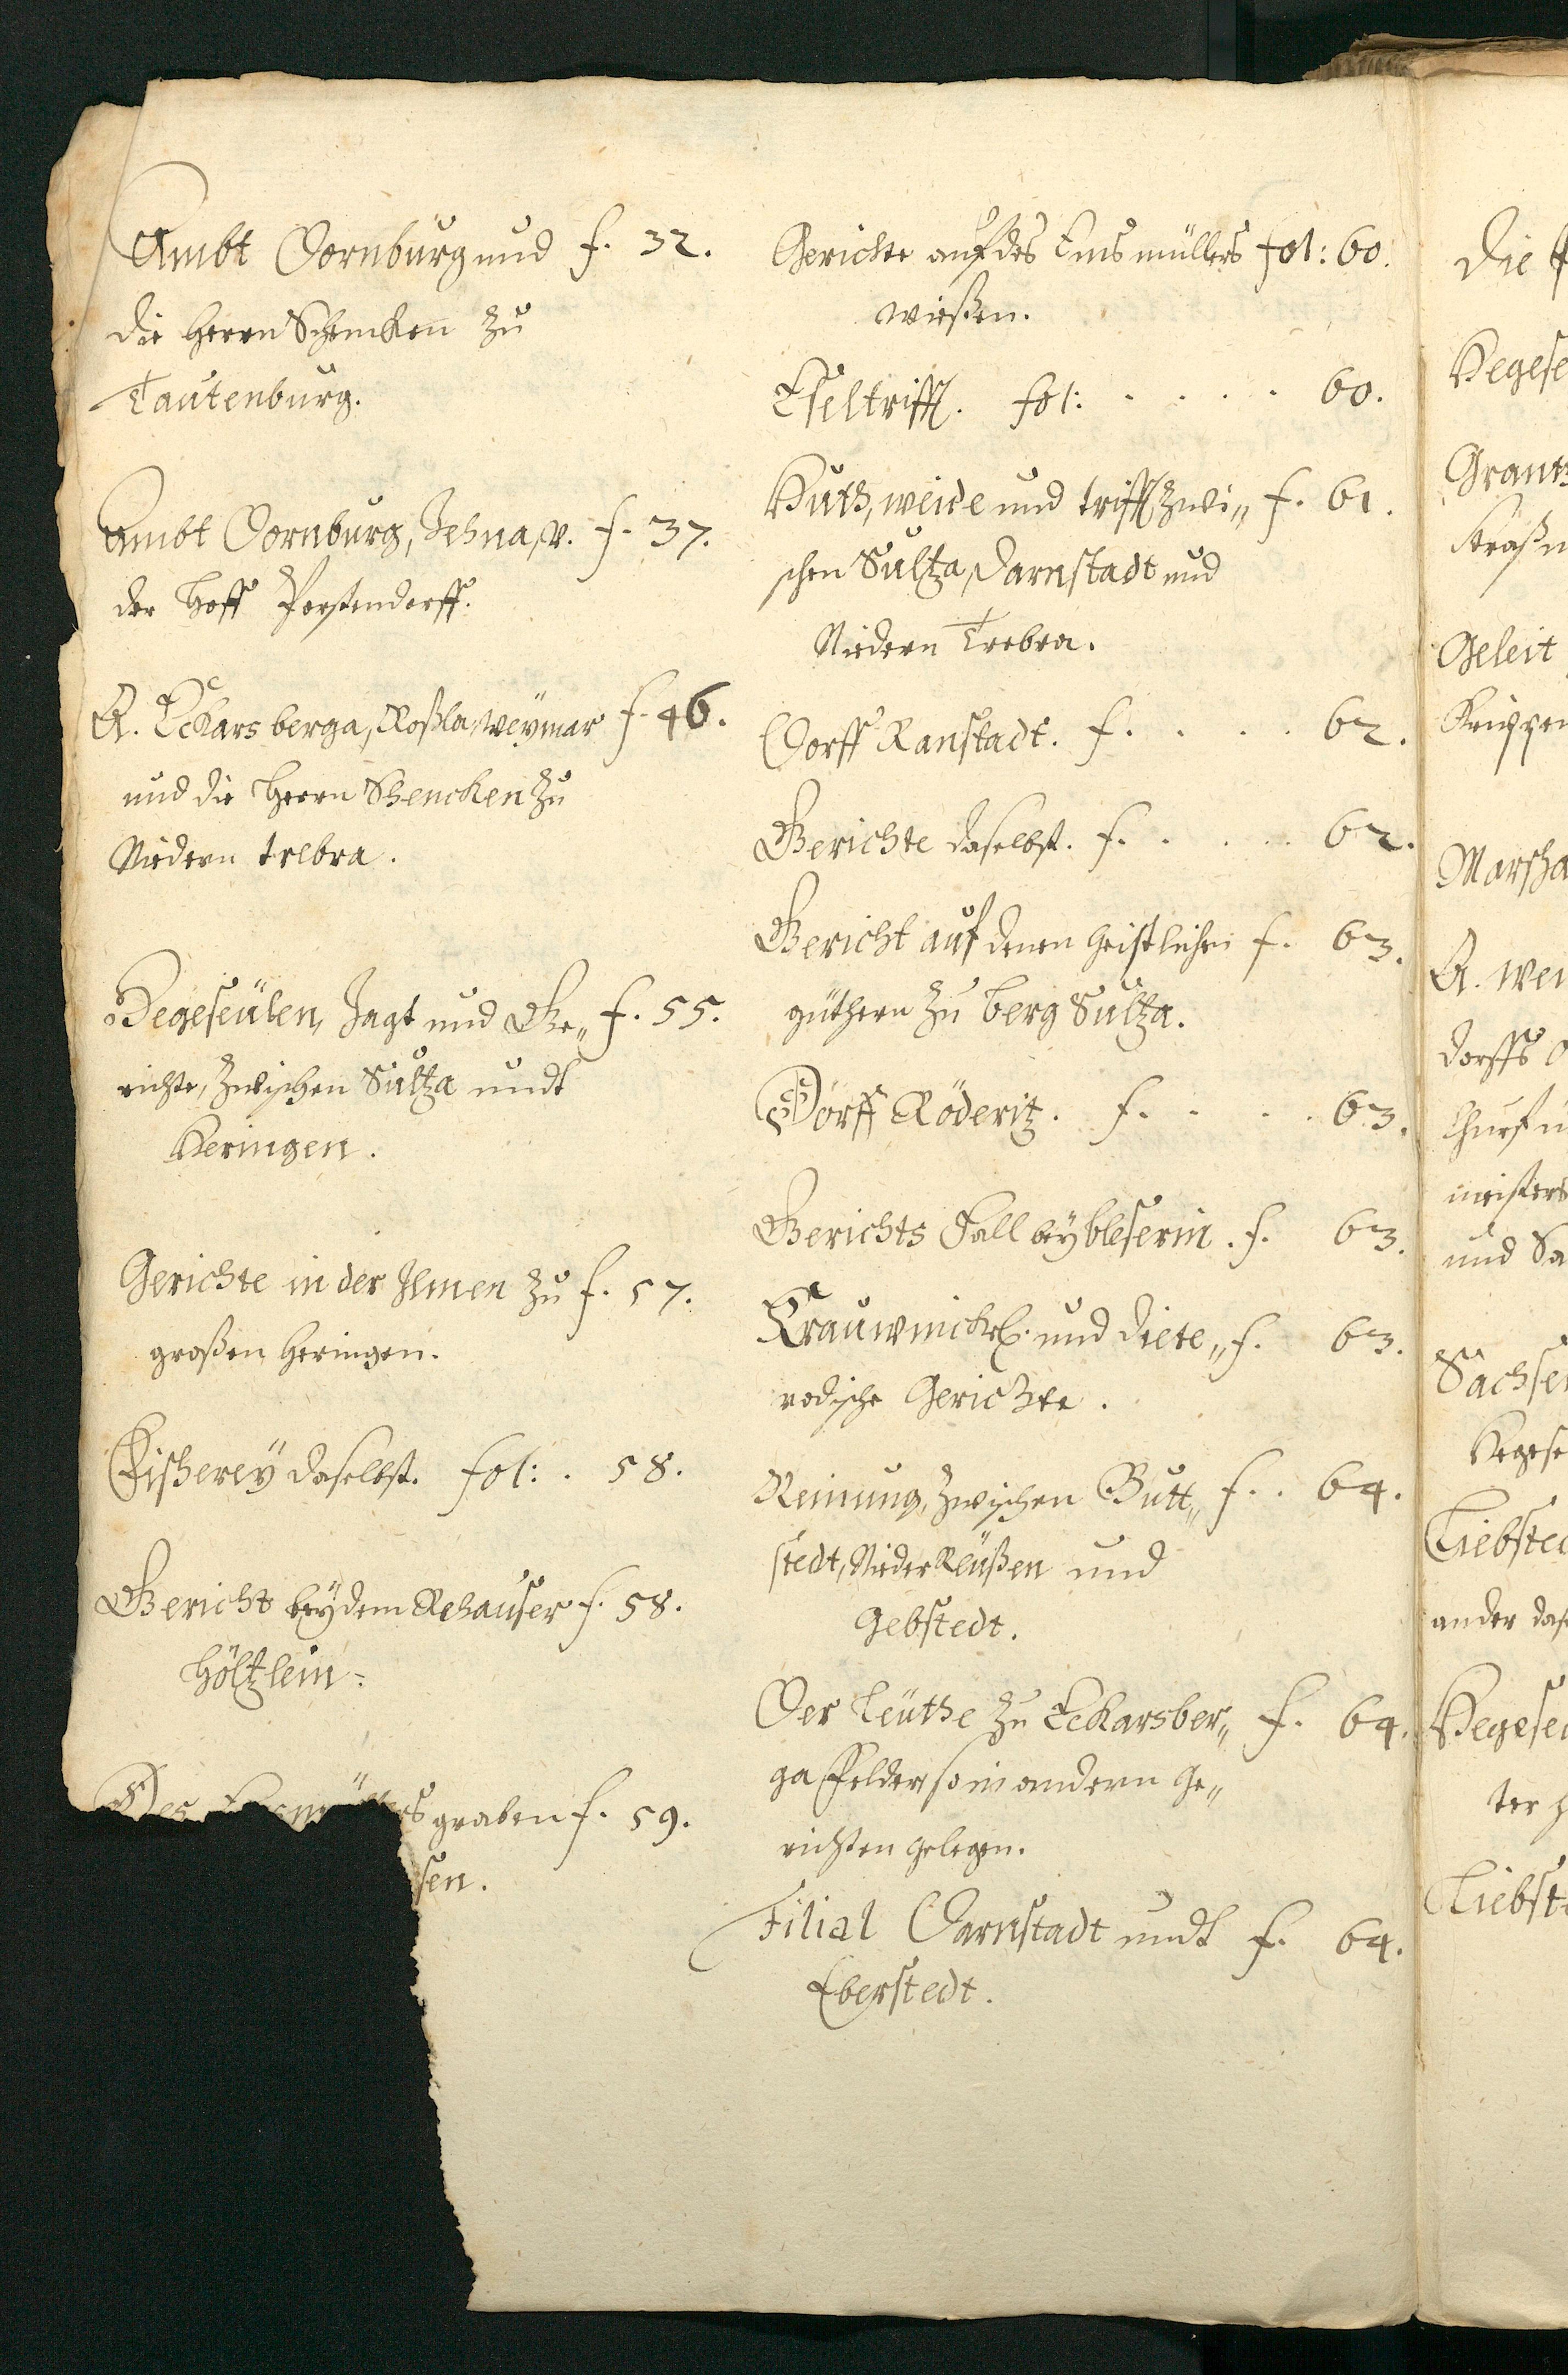 Ambt Dornburg und f. 32.
die Herrn Schencken zu
Tautenburg.
Ambt Dornburg, Jehna, v. f. 37.
der Hoff Porstendorff.
A. Eckarsberga, Roßla, Weymar f. 46.
und die Herrn Schencken zu
Niedern trebra.
Hegeseülen, Jagt und Ge„ f. 55.
richte, zwischen Sultza undt
Heringen.
Gerichte in der Ilmen zu f. 57.
großen Heringen.
Fischerey daselbst. fol: . 58.
Gericht bey dem Rehauser f. 58.
Höltzlein.
Des graben f. 59.
sen.
Gerichte auf des Emsmüllers fol: 60.
wießen.
Eseltrifft. fol: . . . . . 60.
Huth, weide und trifft zwi„ f. 61.
schen Sultza, Darnstadt und
Niedern Trebra.
Dorff Ranstadt. f. . . . . 62.
Gerichte daselbst. f. . . . . 62.
Gericht auf denen Geistlichen f. 63.
güthern zu Berg Sultza.
Dorff Röderitz. f. . . . . 63.
Gerichts Fall bey bleserin. f. 63.
Crauwinckel. und Diete„ f. 63.
rodische Gerichte.
Reinung, zwischen Butt„ f. . 64.
stedt, Nieder Reüßen und
Gebstedt.
Der Leüthe zu Eckarsber„ f. 64.
ga Felder, so in andern Ge„
richten gelegen.
Filial Darnstadt undt f. 64.
Eberstedt.
Die
Hegese
Grantz
straßn
Geleit
Marscha
A. wei
dorffs
Churfü
meisters
und Sa
Sachsen
Hegese
Liebsted
ander das
Hegeseü
ter
Liebste